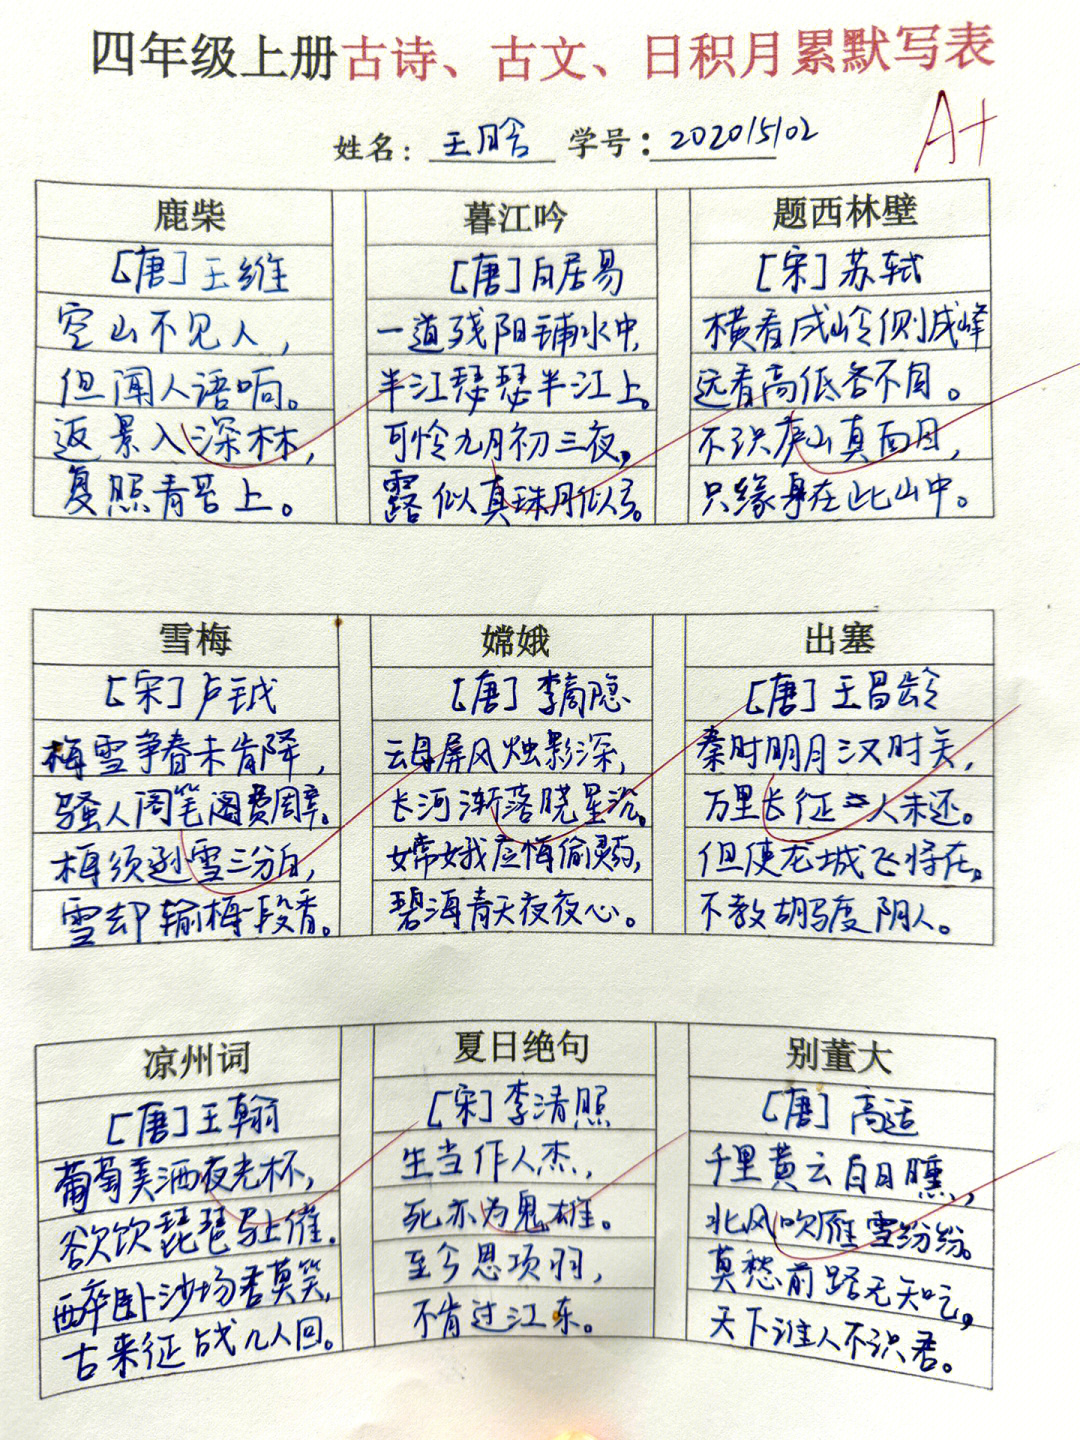 四年级上册古诗、古文、日积月累默写表
A+
姓名：王晗 学号：202015102
鹿柴
［唐］王维
空山不见人，
但闻人语响。
返景入深林，
复照青苔上。
暮江吟
［唐］白居易
一道残阳铺水中，
半江瑟瑟半江上。
可怜九月初三夜，
露似真珠月似弓。
题西林壁
［宋］苏轼
横看成岭侧成峰
远看高低各不同。
不识庐山真面目，
只缘身在此山中。
雪梅
［宋］卢钺
梅雪争春未肯降，
骚人阁笔阁费周章。
梅须逊雪三分白，
雪却输梅一段香。
嫦娥
［唐］李商隐
云母屏风烛影深，
长河渐落晓星沉。
嫦娥应悔偷灵药，
碧海青天夜夜心。
出塞
［唐］王昌龄
秦时明月汉时关，
万里长征人未还。
但使龙城飞将在，
不教胡马度阴人。
凉州词
［唐］王翰
葡萄美酒夜光杯，
欲饮琵琶马上催。
醉卧沙场君莫笑，
古来征战几人回。
夏日绝句
［宋］李清照
生当作人杰，
死亦为鬼雄。
至今思项羽，
不肯过江东。
别董大
［唐］高适
千里黄云白日曛，
北风吹雁雪纷纷。
莫愁前路无知己，
天下谁人不识君。